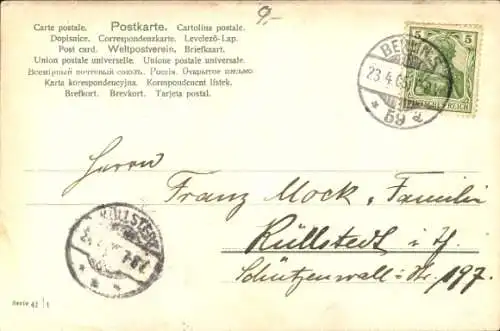 9.-
Carte postale. Postkarte. Cartolina postale.
Dopisnice. Correspondenzkarte. Levelező-Lap.
Post card. Weltpostverein. Briefkaart.
Union postale universelle. Unione postale universale.
Всемірный почтовый союзъ. Россія. Открытое письмо
Karta korespondencyjna. Korespondenční lístek.
Brefkort. Brevkort. Tarjeta postal.
5 5
BERLIN S
23.4.05
59 a
DEUTSCHES REICH
Herrn
Franz Mock u. Familie
Küllstedt i. Th.
Schützenwall-Str. 197.
KÜLLSTEDT
7-8
Serie 42 | 1